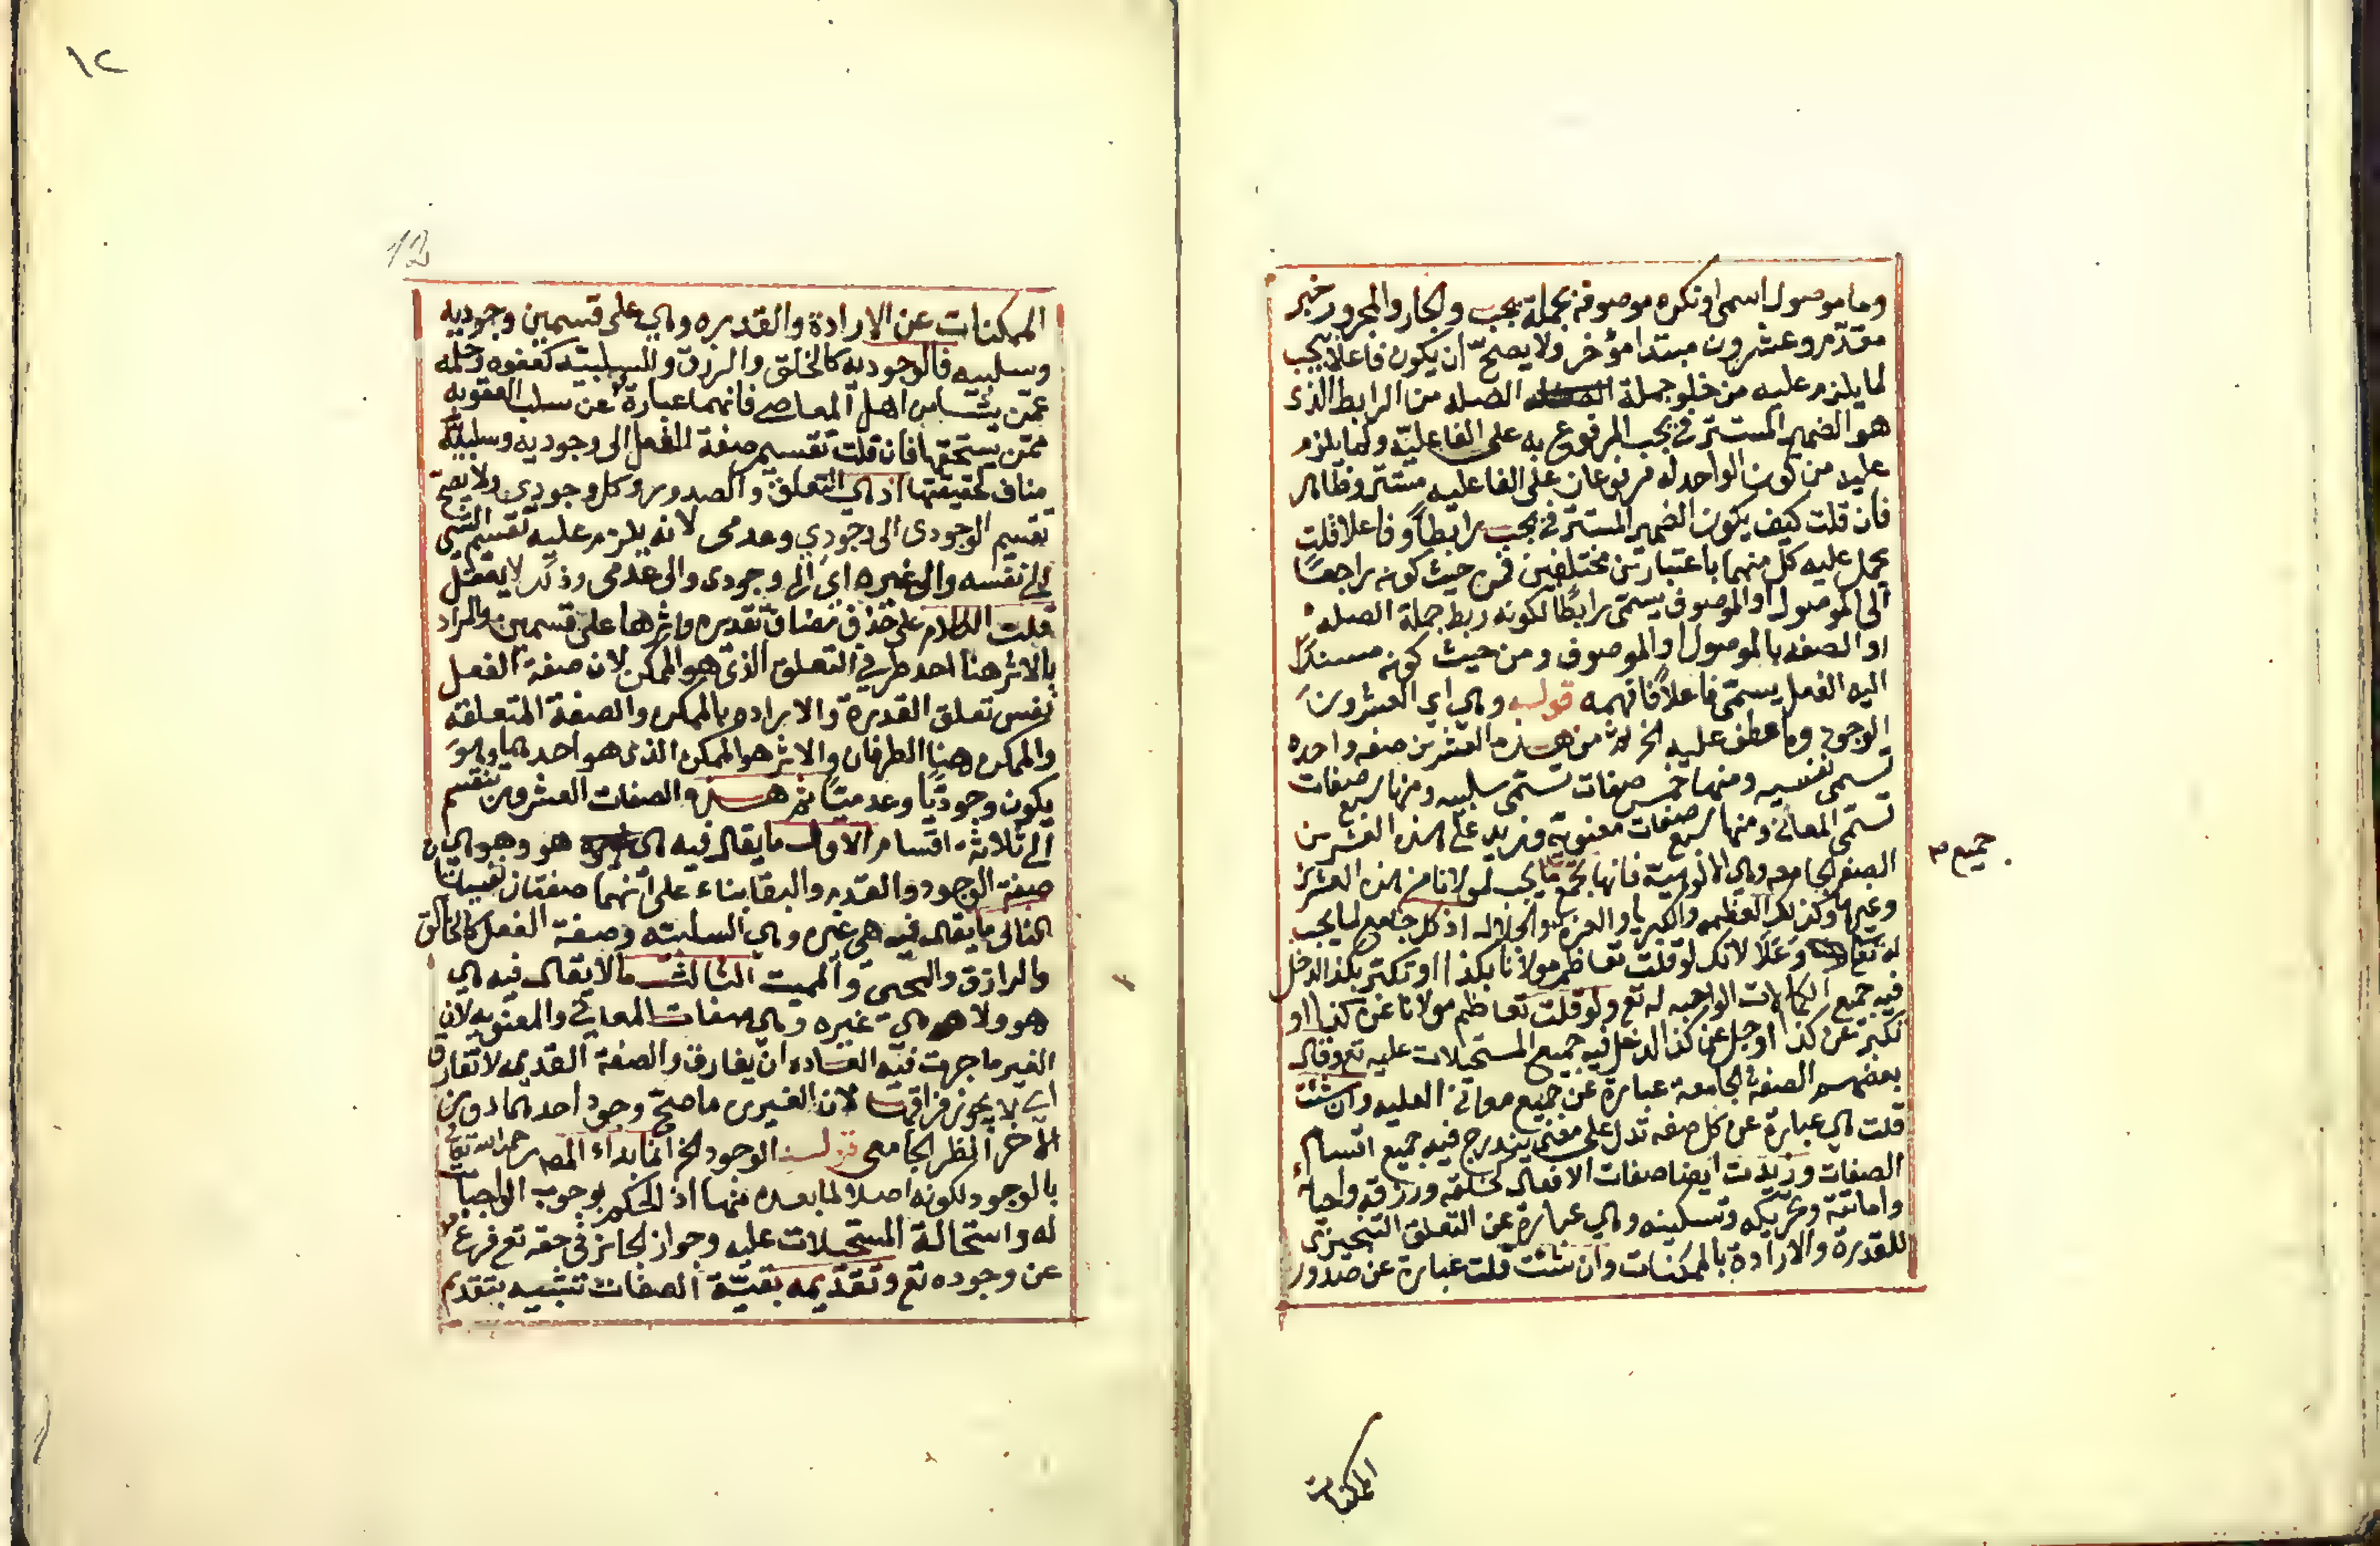 وما موصول اسمي او نكره موصوفة بجملة يجب والجار والمجرور خبر
مقدم وعشرون مبتدا مؤخر ولا يصح ان يكون فاعلا بيجب
لما يلزم عليه من خلو جملة الصله من الرابط الذى
هو الضمير المستتر في يجب المرفوع به على الفاعليّة ولما يلزم
عليه من كون الواحد له مرفوعان على الفاعليه مستتر وظاهر
فان قلت كيف يكون الضمير المستتر في يجب رابطاً وفاعلا قلت
يحمل عليه كل منهما باعتبارين مختلفين فمن حيث كونه راجعًا
الى الموصول او الموصوف يسمّى رابطًا لكونه ربط جملة الصله
او الصفه بالموصول او الموصوف ومن حيث كونه مسندًا
اليه الفعل يسمّى فاعلاً فافهمه قوله وهي اي العشرون
الوجود وما عطف عليه الخ لان من هذه العشرين صفه واحده
تسمى نفسيه ومنها خمس صفات تسمّى سلبيه ومنها سبع صفات
تسمّى المعاني ومنها سبع صفات معنوية ونزيد على هذه العشرين
الصفه الجامعه وهي الالوهيّة فانها تجمع ما يجب لمولانا من هذه العشرين
جميع صح
وغيرها وكذلك العظمه والكبريا والعزه والجلاله اذ كل جامع لما يجب
له تع وعَلا لانك لو قلت تعاظم مولانا بكذا او تكبّر بكذا لدخل
فيه جميع الكمالات الواجبه له تع ولو قلت تعاظم مولانا عن كذا او
تكبّر عن كذا او جل عن كذا لدخل فيه جميع المستحيلات عليه تع وقال
بعضهم الصفة الجامعة عبارة عن جميع معاني العليه وان شئت
قلت هي عبارة عن كل صفه تدل على معنى يندرج فيه جميع اقسام
الصفات وزيدت ايضا صفات الافعال كخلقه ورزقه واحيائه
واماتته وتحريكه وتسكينه وهي عبارة عن التعلق التنجيزى
للقدرة والارادة بالممكنات وان شئت قلت عبارة عن صدور
الممكنات
١٢
12
الممكنات عن الارادة والقدره وهي على قسمين وجوديه
وسلبيه فالوجوديه كالخلق والرزق والسلبيّه كعفوه وحلمه
عمّن يشا من اهل المعاصي فانهما عبارة عن سلب العقوبه
عمّن يستحقها فان قلت تقسيم صفة الفعل الى وجوديه وسلبيّه
مناف لحقيقتها اذ هي التعلق والصدور وكل وجودي ولا يصح
تقسيم الوجودى الى وجودي وعدمى لانه يلزم عليه تقسيم الشي
الى نفسه والى غيره اي الى وجودى والى عدمى وذلك لا يعقل
قلت الكلام على حذف مضاف تقديره واثرها على قسمين والمراد
بالاثر هنا احد طرفي التعلق الذى هو الممكن لان صفة الفعل
نفس تعلق القدرة والاراده بالممكن والصفة المتعلقه
والممكن هنا الطرفان والاثر هو الممكن الذى هو احدهما وهو
يكون وجوديّا وعدميّا ثم هذه الصفات العشرون تنقسم
الى ثلاثة اقسام الاول ما يقال فيه هي هو وهو هي
صفة الوجود والقدم والبقا بناء على انهما صفتان نفسيتان
الثانى ما يقال فيه هى غيره وهي السلبيّه وصفة الفعل كالخالق
والرازق والمحيي والمميت الثالث ما لا يقال فيه هي
هو ولا هي غيره وهي صفات المعاني والمعنويه لان
الغير ما جرت فيه العاده ان يفارق والصفة القديمه لا تفارق
اي لا يجوز فراقها لان الغيرين ما صحّ وجود احدهما دون
الآخر انظر الجامعى قوله الوجود الخ انما بداء المص رحمه الله تعالى
بالوجود لكونه اصلا لما بعده منها اذ الحكم بوجوب الواجبات
له واستحالة المستحيلات عليه وجواز الجائز في حقه تع فرع
عن وجوده تع وتقديمه بقيّة الصفات تشبيه بتقدم